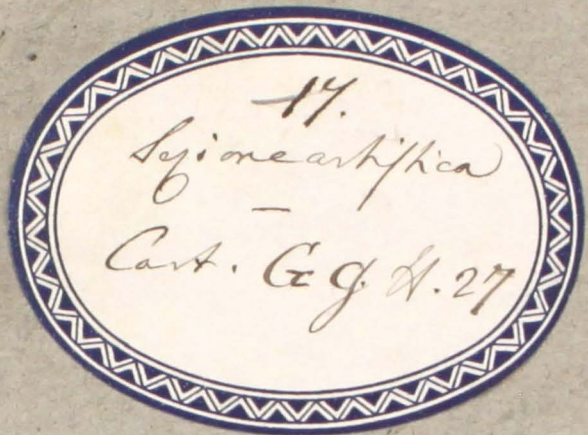 17.
Sezione artistica
—
Cart. G g. H. 27